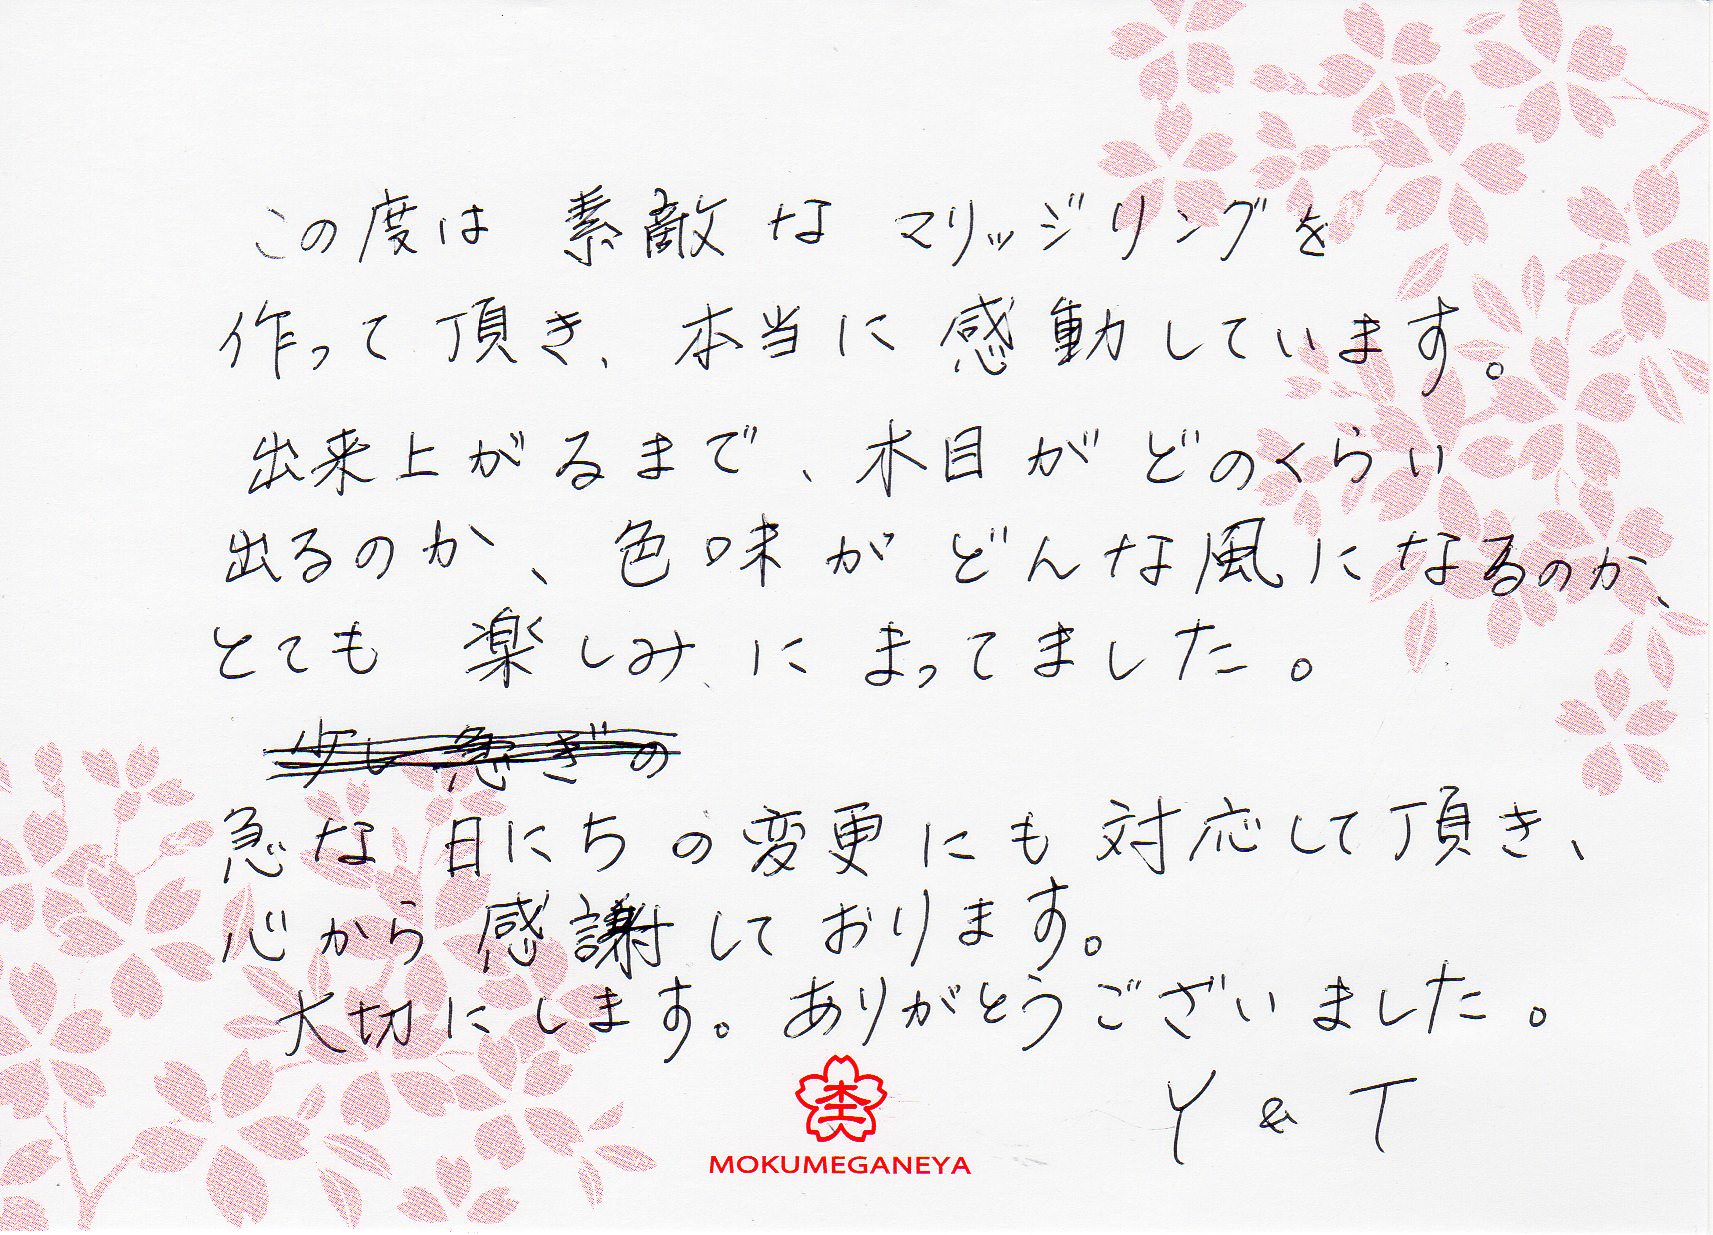 この度は 素敵な マリッジリングを
作って頂き、本当に感動しています。
出来上がるまで、木目がどのくらい
出るのか、色味がどんな風になるのか、
とても楽しみにまってました。
少し急ぎの
急な日にちの変更にも対応して頂き、
心から感謝しております。
大切にします。ありがとうございました。
Y & T
MOKUMEGANEYA